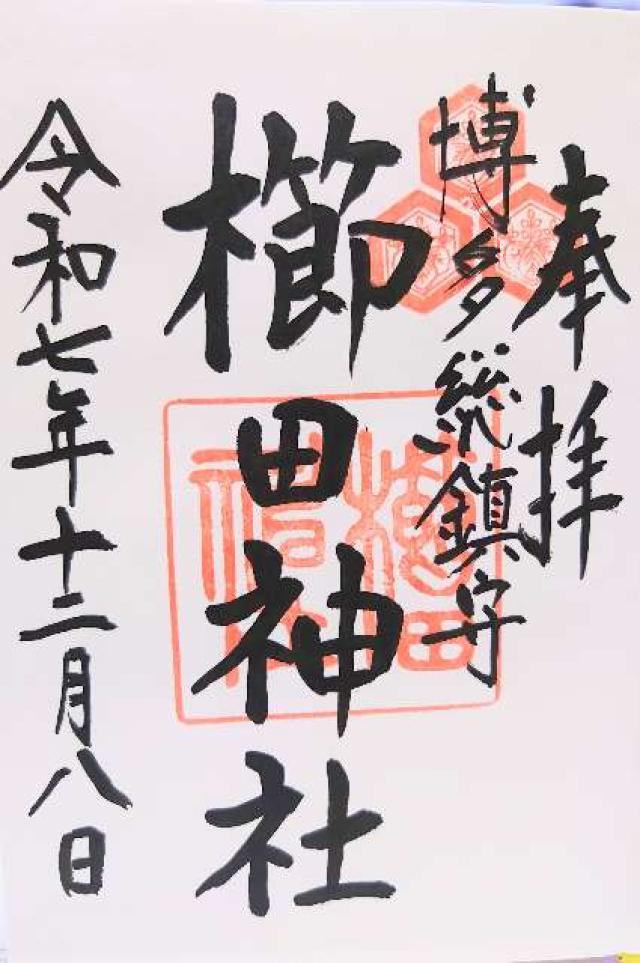 奉拝
博多総鎮守
櫛田神社
令和七年十二月八日